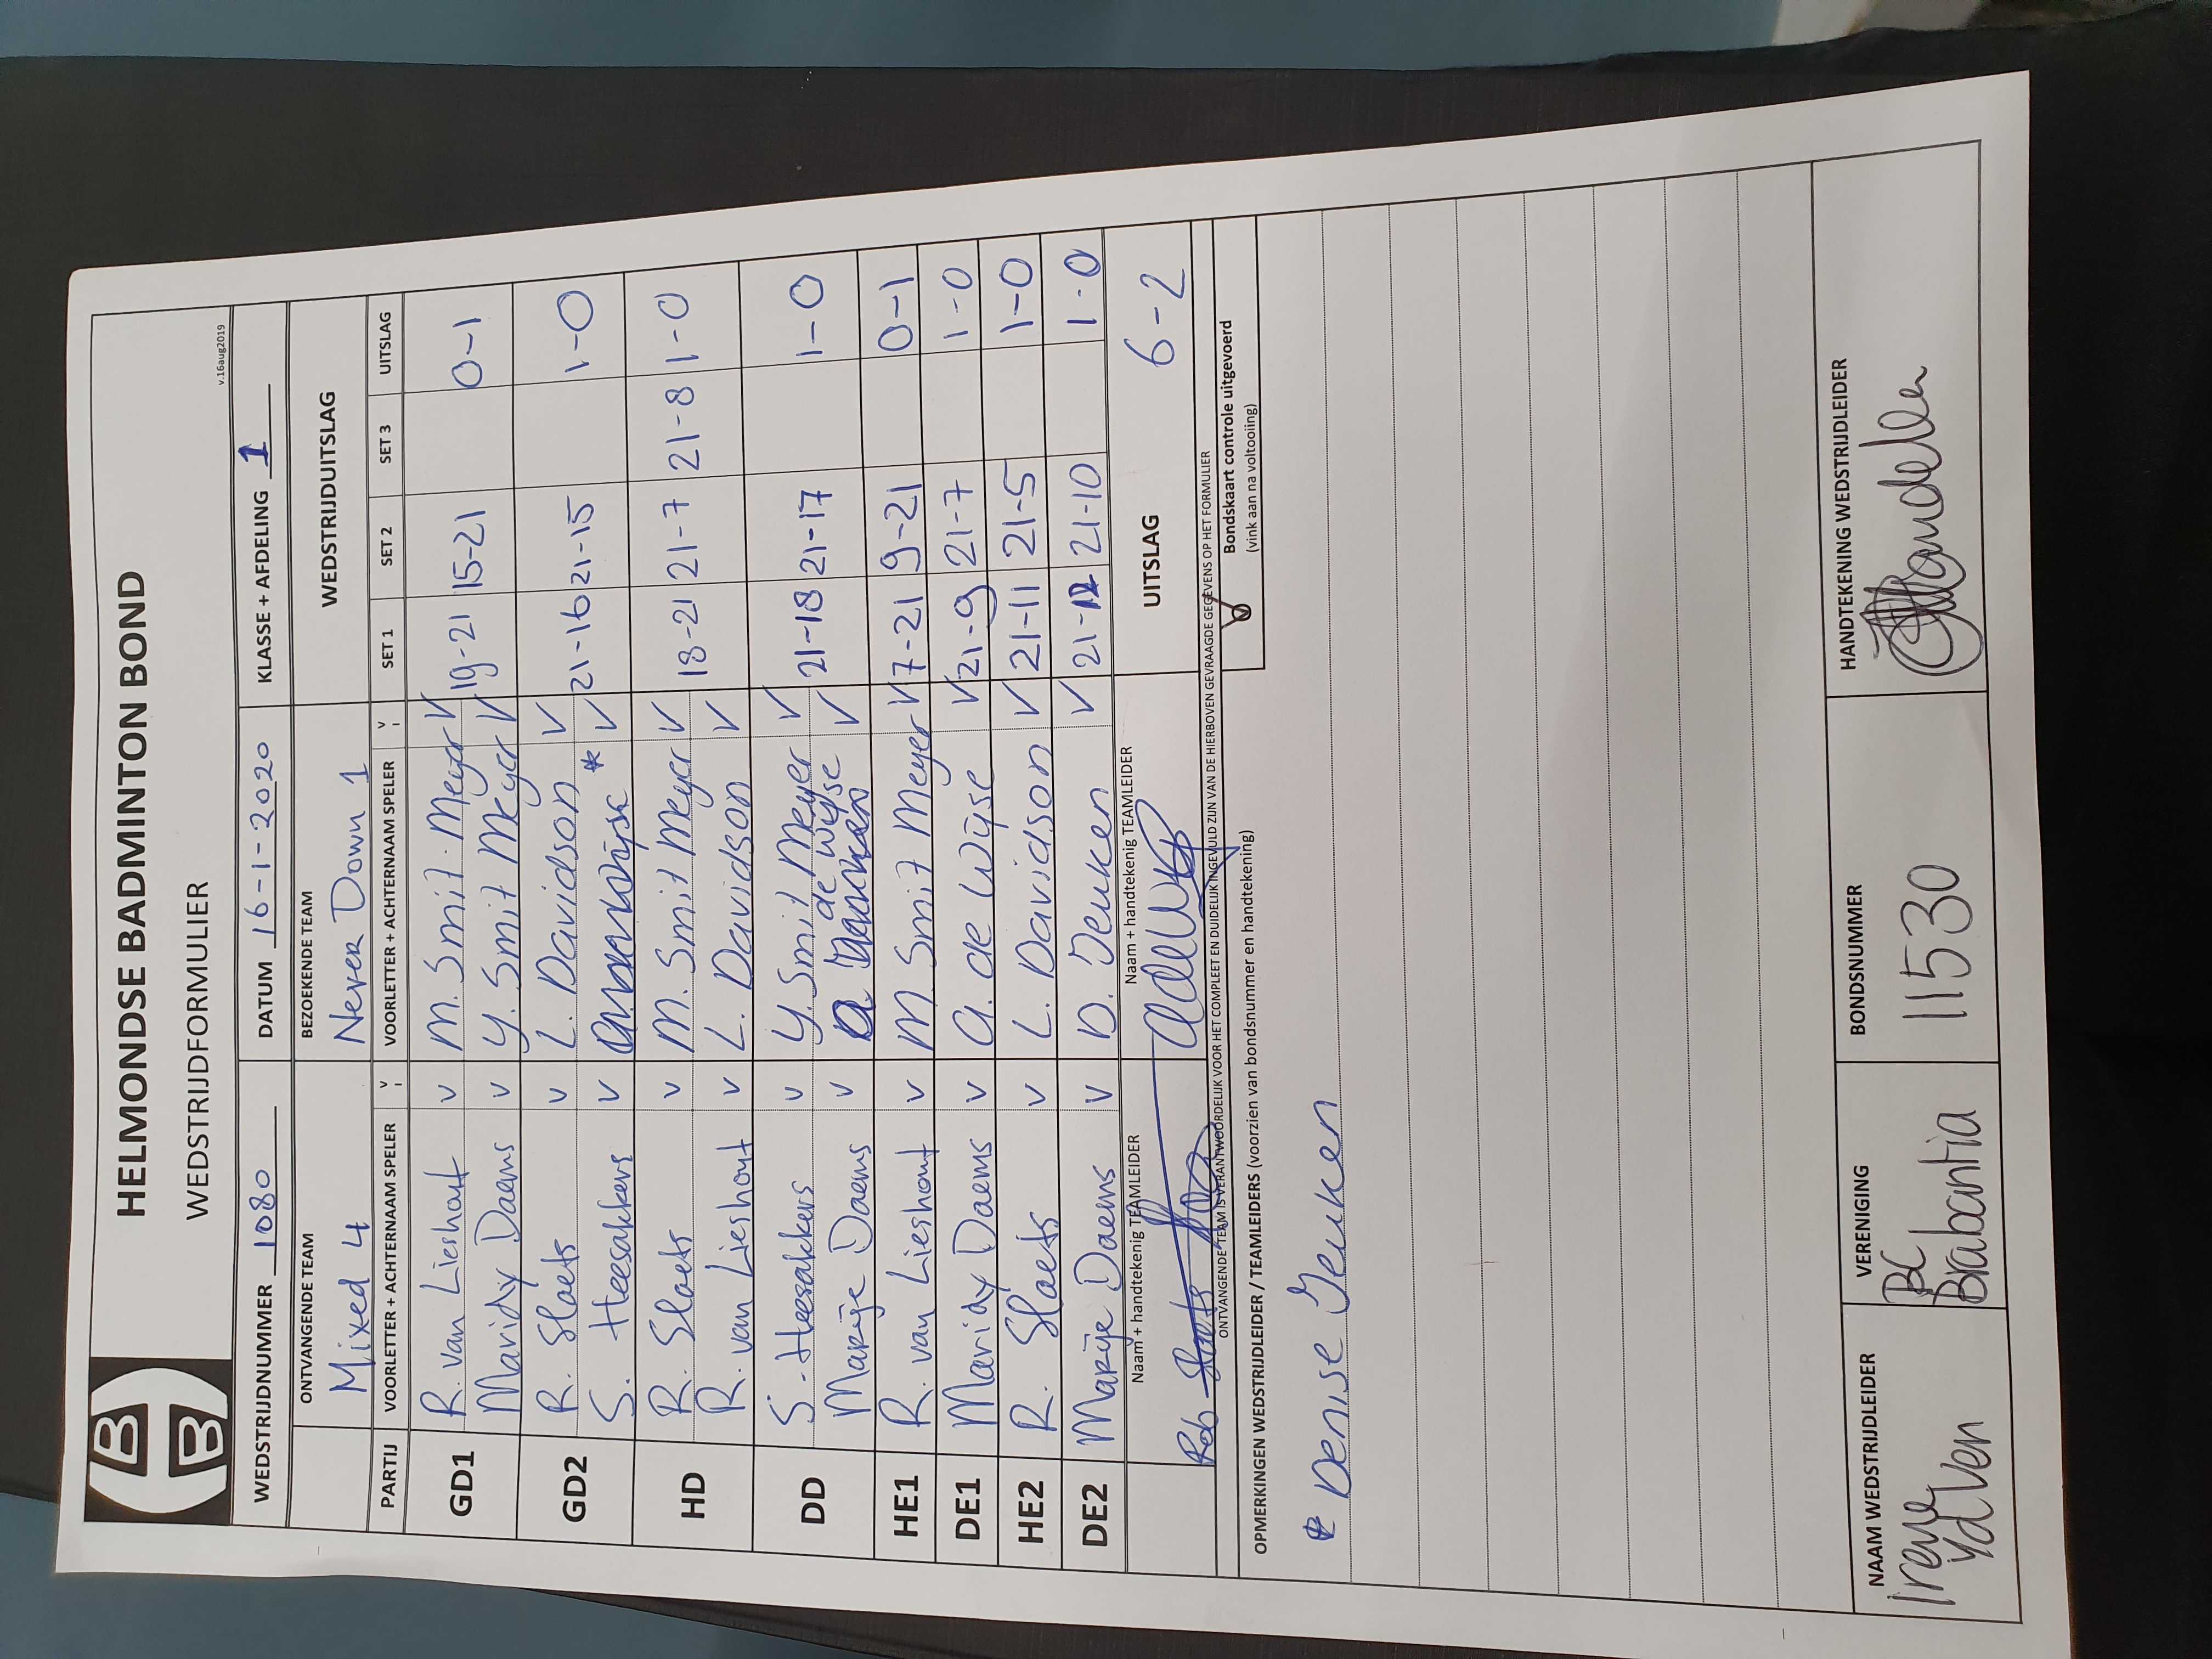 HELMONDSE BADMINTON BOND
WEDSTRIJDFORMULIER
v.16aug2019
WEDSTRIJDNUMMER 1080 DATUM 16-1-2020 KLASSE + AFDELING 1
ONTVANGENDE TEAM BEZOEKENDE TEAM WEDSTRIJDUITSLAG
Mixed 4 Never Down 1
PARTIJ VOORLETTER + ACHTERNAAM SPELER V VOORLETTER + ACHTERNAAM SPELER V SET 1 SET 2 SET 3 UITSLAG
GD1 R. van Lieshout v M. Smit Meyer V 19-21 15-21 0-1
Maridy Daems v Y. Smit Meyer V
GD2 R. Slaets v L. Davidson V 21-16 21-15 1-0
S. Heesakkers v * V
HD R. Slaets v M. Smit Meyer V 18-21 21-7 21-8 1-0
R. van Lieshout v L. Davidson V
DD S. Heesakkers v Y. Smit Meyer V 21-18 21-17 1-0
Marije Daems v a de Wijse V
HE1 R. van Lieshout v M. Smit Meyer V 17-21 9-21 0-1
DE1 Maridy Daems v a. de Wijse V 21-9 21-7 1-0
HE2 R. Slaets v L. Davidson V 21-11 21-5 1-0
DE2 Marije Daems v D. Jeuken V 21-12 21-10 1-0
Naam + handtekenig TEAMLEIDER Naam + handtekenig TEAMLEIDER UITSLAG 6-2
Rob Slaets
ONTVANGENDE TEAM IS VERANTWOORDELIJK VOOR HET COMPLEET EN DUIDELIJK INGEVULD ZIJN VAN DE HIERBOVEN GEVRAAGDE GEGEVENS OP HET FORMULIER
OPMERKINGEN WEDSTRIJDLEIDER / TEAMLEIDERS (voorzien van bondsnummer en handtekening)
Bondskaart controle uitgevoerd
(vink aan na voltooiing)
* Denise Jeuken
NAAM WEDSTRIJDLEIDER VERENIGING BONDSNUMMER HANDTEKENING WEDSTRIJDLEIDER
Irene vd Ven BC Brabantia 11530